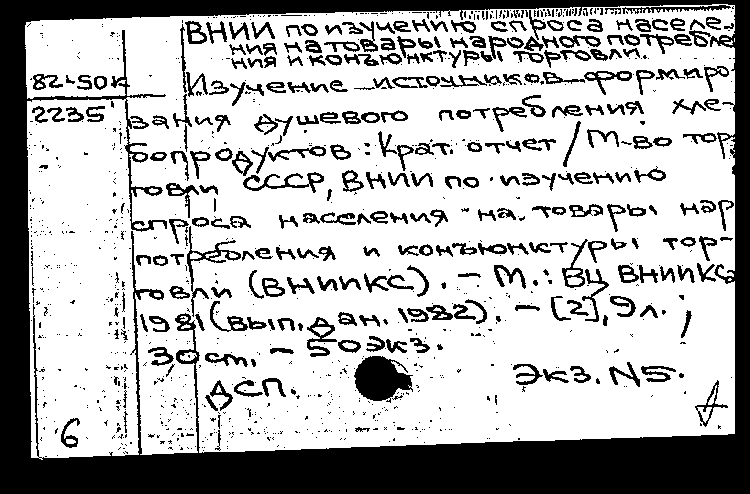 ВНИИ по изучению спроса населе-
ния на товары народного потребле
ния и конъюнктуры торговли.
82-50к
Изучение источников формиро
2235
вания душевого потребления хле-
бопродуктов : Крат. отчет / М-во тор
говли СССР, ВНИИ по изучению
спроса населения на товары нар
потребления и конъюнктуры тор-
говли (ВНИИКС). - М. : ВЦ ВНИИКС,
1981 (вып. дан. 1982). - [2], 9 л. ;
30 cm. - 50 экз.
ДСП.
Экз. N5.
6